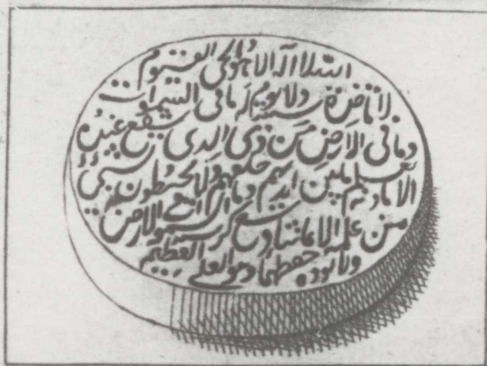 الله لا اله الا هو الحي القيوم
لا تاخذه سنة ولا نوم له ما في السموات
وما في الارض من ذي الذي يشفع عنده
الا باذنه يعلم ما بين ايديهم وما خلفهم ولا يحيطون بشيء
من علمه الا بما شا وسع كرسيه الارض
ولا يوده حفظهما وهو العلي العظيم